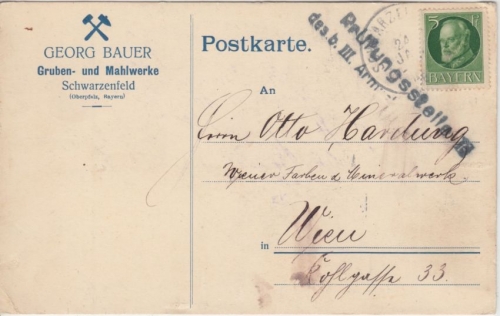 GEORG BAUER
Gruben- und Mahlwerke
Schwarzenfeld
(Oberpfalz, Bayern)
Postkarte.
Prüfungsstelle
des b. III. Armee
24
5
BAYERN
An
Herrn Otto Hardung
Wiener Farben & Mineralwerke
in
Wien
Kohlgasse 33.